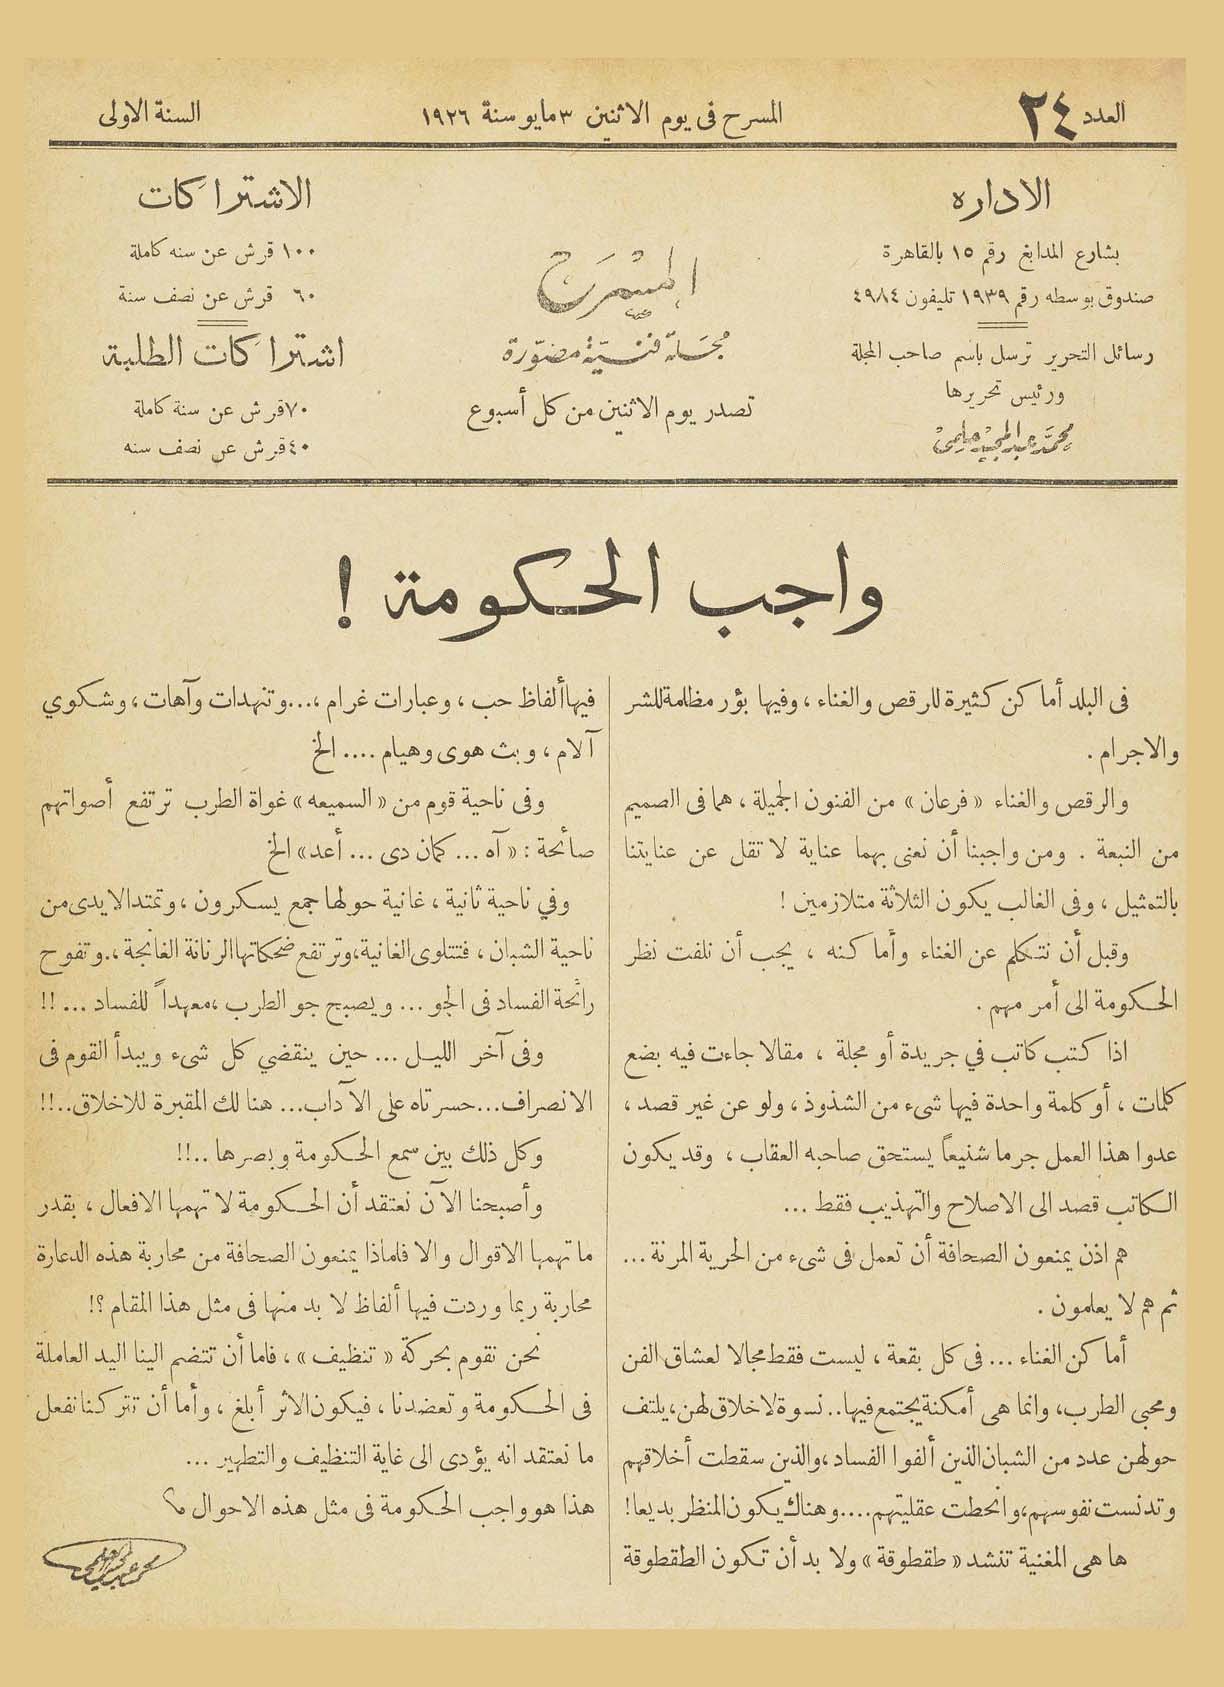 العدد ٢٤
المسرح فى يوم الاثنين ٣ مايو سنة ١٩٢٦
السنة الاولى
الاداره
بشارع المدابغ رقم ١٥ بالقاهرة
صندوق بوسطه رقم ١٩٣٩ تليفون ٤٩٨٤
رسائل التحرير ترسل باسم صاحب المجلة
ورئيس تحريرها
محمد عبد المجيد حلمى
المسرح
مجلة فنية مصورة
تصدر يوم الاثنين من كل أسبوع
الاشتراكات
١٠٠ قرش عن سنه كاملة
٦٠ قرش عن نصف سنة
اشتراكات الطلبة
٧٠ قرش عن سنة كاملة
٤٠ قرش عن نصف سنه
واجب الحكومة !
فى البلد أماكن كثيرة للرقص والغناء ، وفيها بؤر مظلمة للشر
والاجرام .
والرقص والغناء « فرعان » من الفنون الجميلة ، هما فى الصميم
من النبعة . ومن واجبنا أن نعنى بهما عناية لا تقل عن عنايتنا
بالتمثيل ، وفى الغالب يكون الثلاثة متلازمين !
وقبل أن نتكلم عن الغناء وأماكنه ، يجب أن نلفت نظر
الحكومة الى أمر مهم .
اذا كتب كاتب في جريدة أو مجلة ، مقالا جاءت فيه بضع
كلمات ، أو كلمة واحدة فيها شىء من الشذوذ ، ولو عن غير قصد ،
عدوا هذا العمل جرما شنيعاً يستحق صاحبه العقاب ، وقد يكون
الكاتب قصد الى الاصلاح والتهذيب فقط ...
هم اذن يمنعون الصحافة أن تعمل فى شىء من الحرية المرنة ...
ثم هم لا يعلمون .
أماكن الغناء ... فى كل بقعة ، ليست فقط مجالا لعشاق الفن
ومحبى الطرب ، وانما هى أمكنة يجتمع فيها .. نسوة لاخلاق لهن ، يلتف
حولهن عدد من الشبان الذين ألفوا الفساد ، والذين سقطت أخلاقهم
وتدنست نفوسهم ، وانحطت عقليتهم .... وهناك يكون المنظر بديعا !
ها هى المغنية تنشد « طقطوقة » ولا بد أن تكون الطقطوقة
فيها ألفاظ حب ، وعبارات غرام ، ... وتنهدات وآهات ، وشكوي
آلام ، وبث هوى وهيام .... الخ
وفى ناحية قوم من « السميعه » غواة الطرب ترتفع أصواتهم
صائحة : « آه ... كمان دى ... أعد » الخ
وفي ناحية ثانية ، غانية حولها جمع يسكرون ، وتمتد الايدى من
ناحية الشبان ، فتتلوى الغانية ، وترتفع ضحكاتها الرنانة الغانجة ، . وتفوح
رائحة الفساد فى الجو ... ويصبح جو الطرب ، معهداً للفساد ... !!
وفى آخر الليل ... حين ينقضي كل شىء ويبدأ القوم فى
الانصراف ... حسرتاه على الآداب ... هنالك المقبرة للاخلاق ..!!
وكل ذلك بين سمع الحكومة وبصرها ..!!
وأصبحنا الآن نعتقد أن الحكومة لا تهمها الافعال ، بقدر
ما تهمها الاقوال والا فلماذا يمنعون الصحافة من محاربة هذه الدعارة
محاربة ربما وردت فيها ألفاظ لا بد منها فى مثل هذا المقام ؟!
نحن نقوم بحركة « تنظيف » ، فاما أن تنضم الينا اليد العاملة
فى الحكومة وتعضدنا ، فيكون الاثر أبلغ ، وأما أن تتركنا نفعل
ما نعتقد انه يؤدى الى غاية التنظيف والتطهير ...
هذا هو واجب الحكومة فى مثل هذه الاحوال ؟
محمد عبد المجيد حلمى